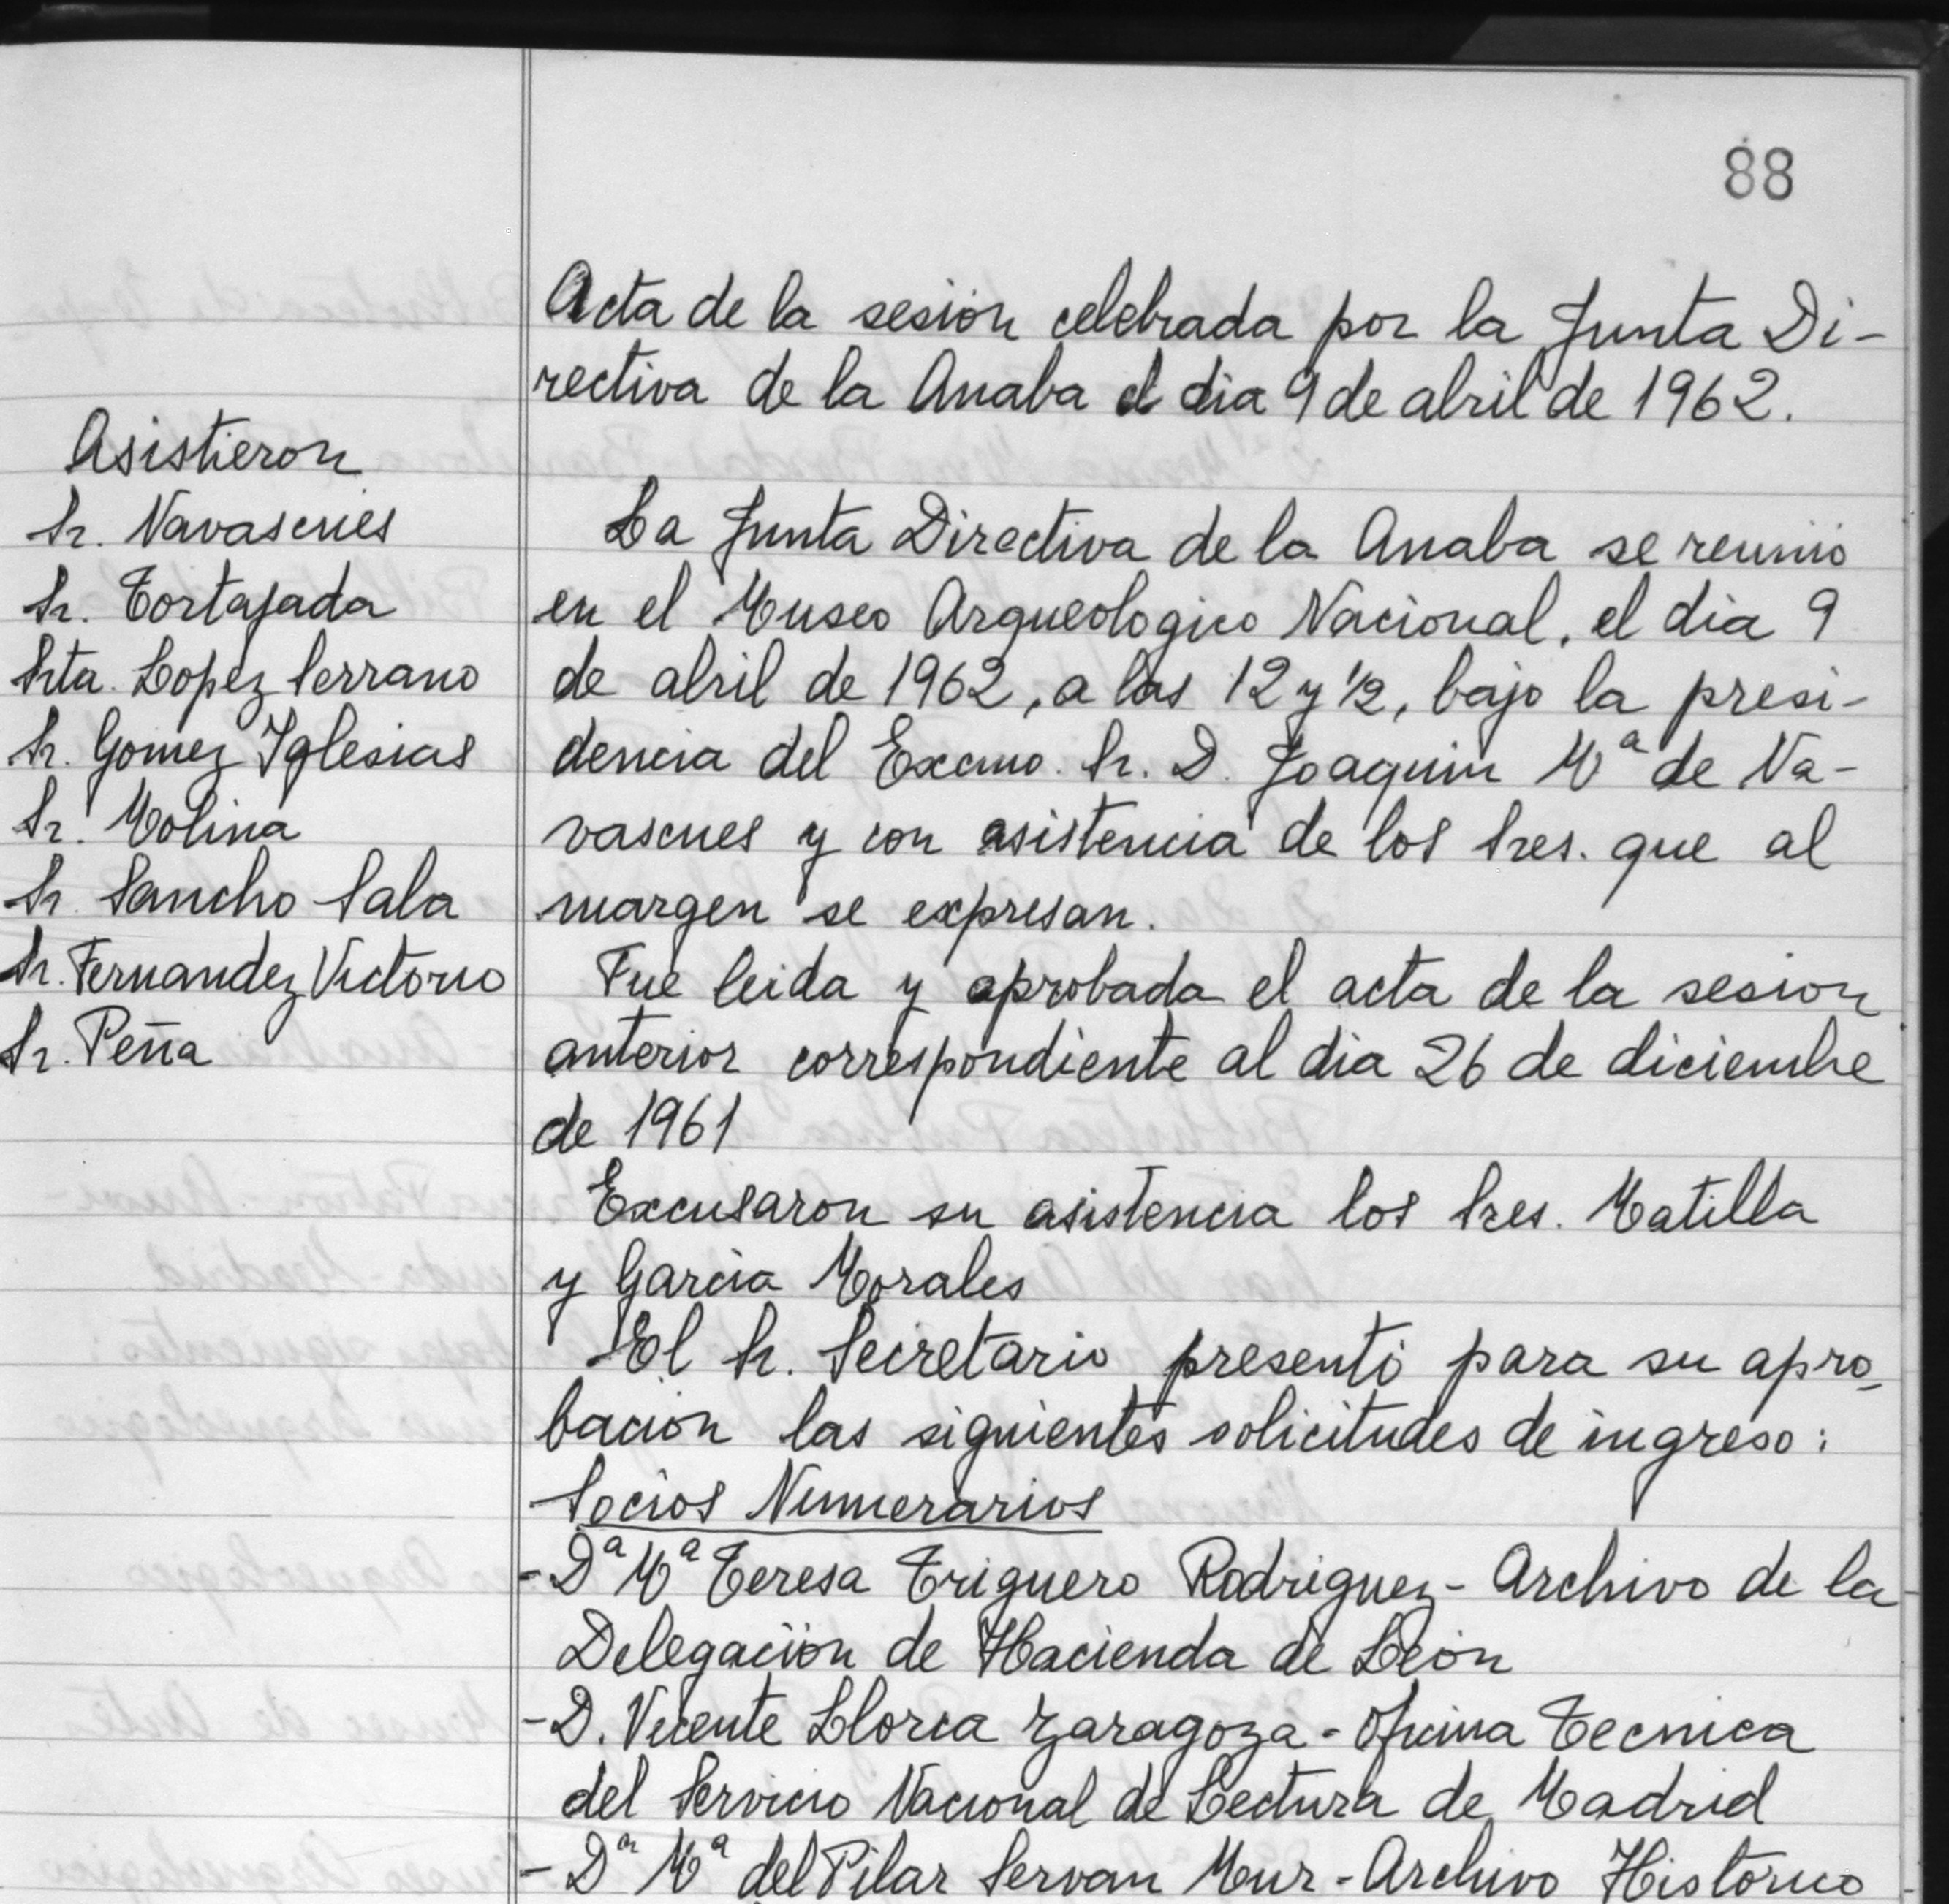 88
Acta de la sesión celebrada por la Junta Di-
rectiva de la Anaba el dia 9 de abril de 1962.
Asistieron
Sr. Navascués
Sr. Tortajada
Srta. Lopez Serrano
Sr. Gomez Iglesias
Sr. Molina
Sr. Sancho Sala
Sr. Fernandez Victorio
Sr. Peña
La Junta Directiva de la Anaba se reunió
en el Museo Arqueologico Nacional, el dia 9
de abril de 1962, a las 12 y ½, bajo la presi-
dencia del Excmo. Sr. D. Joaquin Mª de Na-
vascues y con asistencia de los Sres. que al
margen se expresan.
Fue leida y aprobada el acta de la sesion
anterior correspondiente al dia 26 de diciembre
de 1961
Excusaron su asistencia los Sres. Matilla
y Garcia Morales
El Sr. Secretario presentó para su apro-
bación las siguientes solicitudes de ingreso:
Socios Numerarios
- Dª Mª Teresa Triguero Rodriguez - Archivo de la
Delegación de Hacienda de León
- D. Vicente Llorca Zaragoza - Oficina Tecnica
del Servicio Nacional de Lectura de Madrid
- Dª Mª del Pilar Servan Mur - Archivo Historico